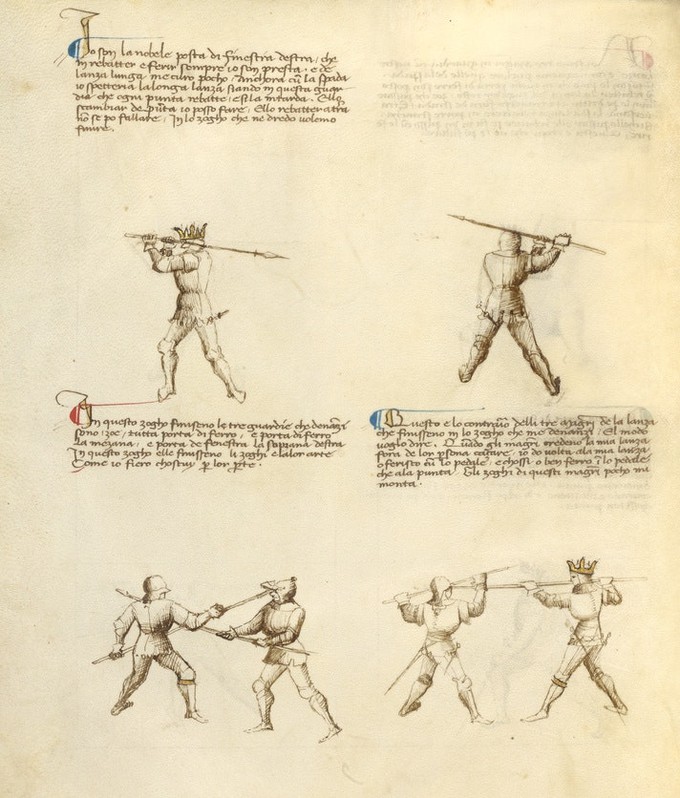 Io son la nobele posta di finestra destra, che
in rebatter e ferir sempre io son presta. e de
lanza lunga me curo pocho. Anchora cum la spada
io spetteria la longa lanza stando in questa guar
dia che ogni punta rebatte, e si la intarda. Ello
scambiar de punta io posso fare. Ello rebatter atra
non se po fallare, In lo zogho che me dredo volemo
finire.
In questo zogho finisseno le tre guardie che denanzi
sono, zoe, tutta porta di ferro, e porta di ferro
la mezana, e posta de fenestra la soprana destra
In questo zogho elle finisseno li zoghi e la lor arte
Como io fiero chostuy per lor parte.
Questo e lo contrario delli tre magistri de la lanza
che finisseno in lo zogho che me denanzi. El modo
voglo dire. Quando gli magistri credeno la mia lanza
fora de lor persona cazare, io do volta ala mia lanza
e ferisco cum lo pedale, e chossi o ben ferro in lo pedale
che ala punta. Gli zoghi di questi magistri pocho mi
monta.